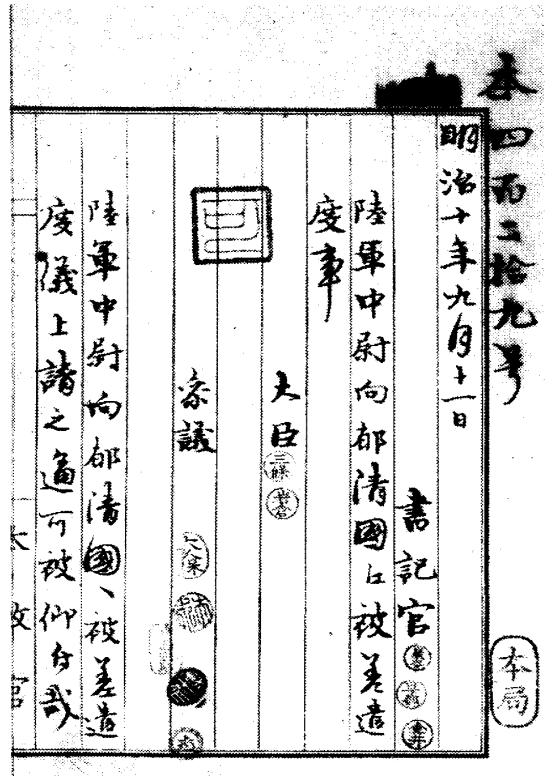 本四百二拾九号
本局
明治十年九月十一日
書記官
陸軍中尉向郁清國江被差遣
度事
大臣
三條
岩倉
可
参議
陸軍中尉向郁清國ヘ被差遣
度儀上請之通可被仰付哉
太政官